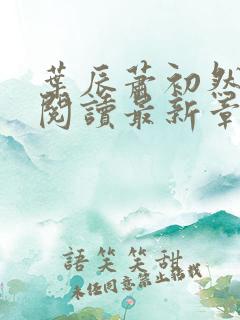 葉辰蕭初然
閱讀最新章
語笑笑甜
未經同意禁止搭載